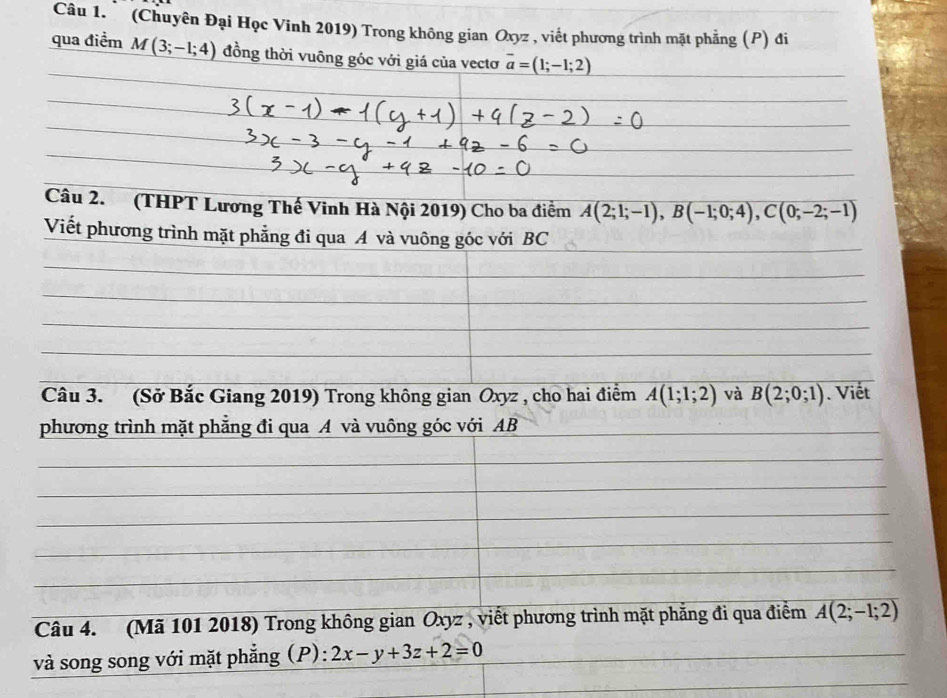 Câu 1. (Chuyên Đại Học Vinh 2019) Trong không gian Oxyz , viết phương trình mặt phẳng (P) đi
qua điểm M(3;−1;4) đồng thời vuông góc với giá của vectơ a⃗ = (1;−1;2)
3(x - 1) - 1(y + 1) + 4(z - 2) = 0
3x - 3 - y - 1 + 4z - 6 = 0
3x - y + 4z - 10 = 0
Câu 2. (THPT Lương Thế Vinh Hà Nội 2019) Cho ba điểm A(2;1;−1), B(−1;0;4), C(0;−2;−1)
Viết phương trình mặt phẳng đi qua A và vuông góc với BC
Câu 3. (Sở Bắc Giang 2019) Trong không gian Oxyz , cho hai điểm A(1;1;2) và B(2;0;1). Viết
phương trình mặt phẳng đi qua A và vuông góc với AB
Câu 4. (Mã 101 2018) Trong không gian Oxyz , viết phương trình mặt phẳng đi qua điểm A(2;−1;2)
và song song với mặt phẳng (P): 2x − y + 3z + 2 = 0